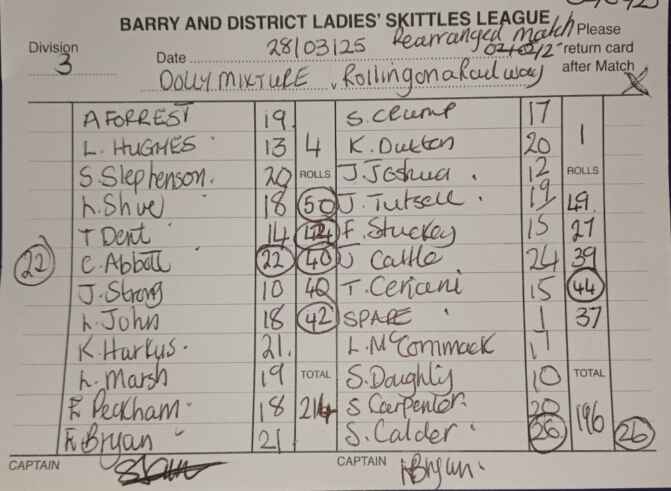 BARRY AND DISTRICT LADIES' SKITTLES LEAGUE
Division 3 Date 28/03/25 Rearranged Match Please return card after Match
DOLLY MIXTURE v Rollingonarailway X
A FORREST 19 S. Crump 17
L. HUGHES 13 4 K. Dutton 20 1
S. Stephenson. 20 ROLLS J. Joshua. 12 ROLLS
L. Shue 18 50 J. Tutsell. 19 49
T Dent 14 42 F. Stuckey 15 27
22 C. Abbott 22 40 J Cattle 24 39
J. Strong 10 40 T. Ceriani 15 44
L. John 18 42 SPARE 1 37
K. Harkus. 21. L. McCormmack 17
L. Marsh 19 TOTAL S. Doughly 10 TOTAL
F. Peckham 18 214 S Carpenter. 20 196
F. Bryan 21 S. Calder 26 26
CAPTAIN CAPTAIN Bryan.